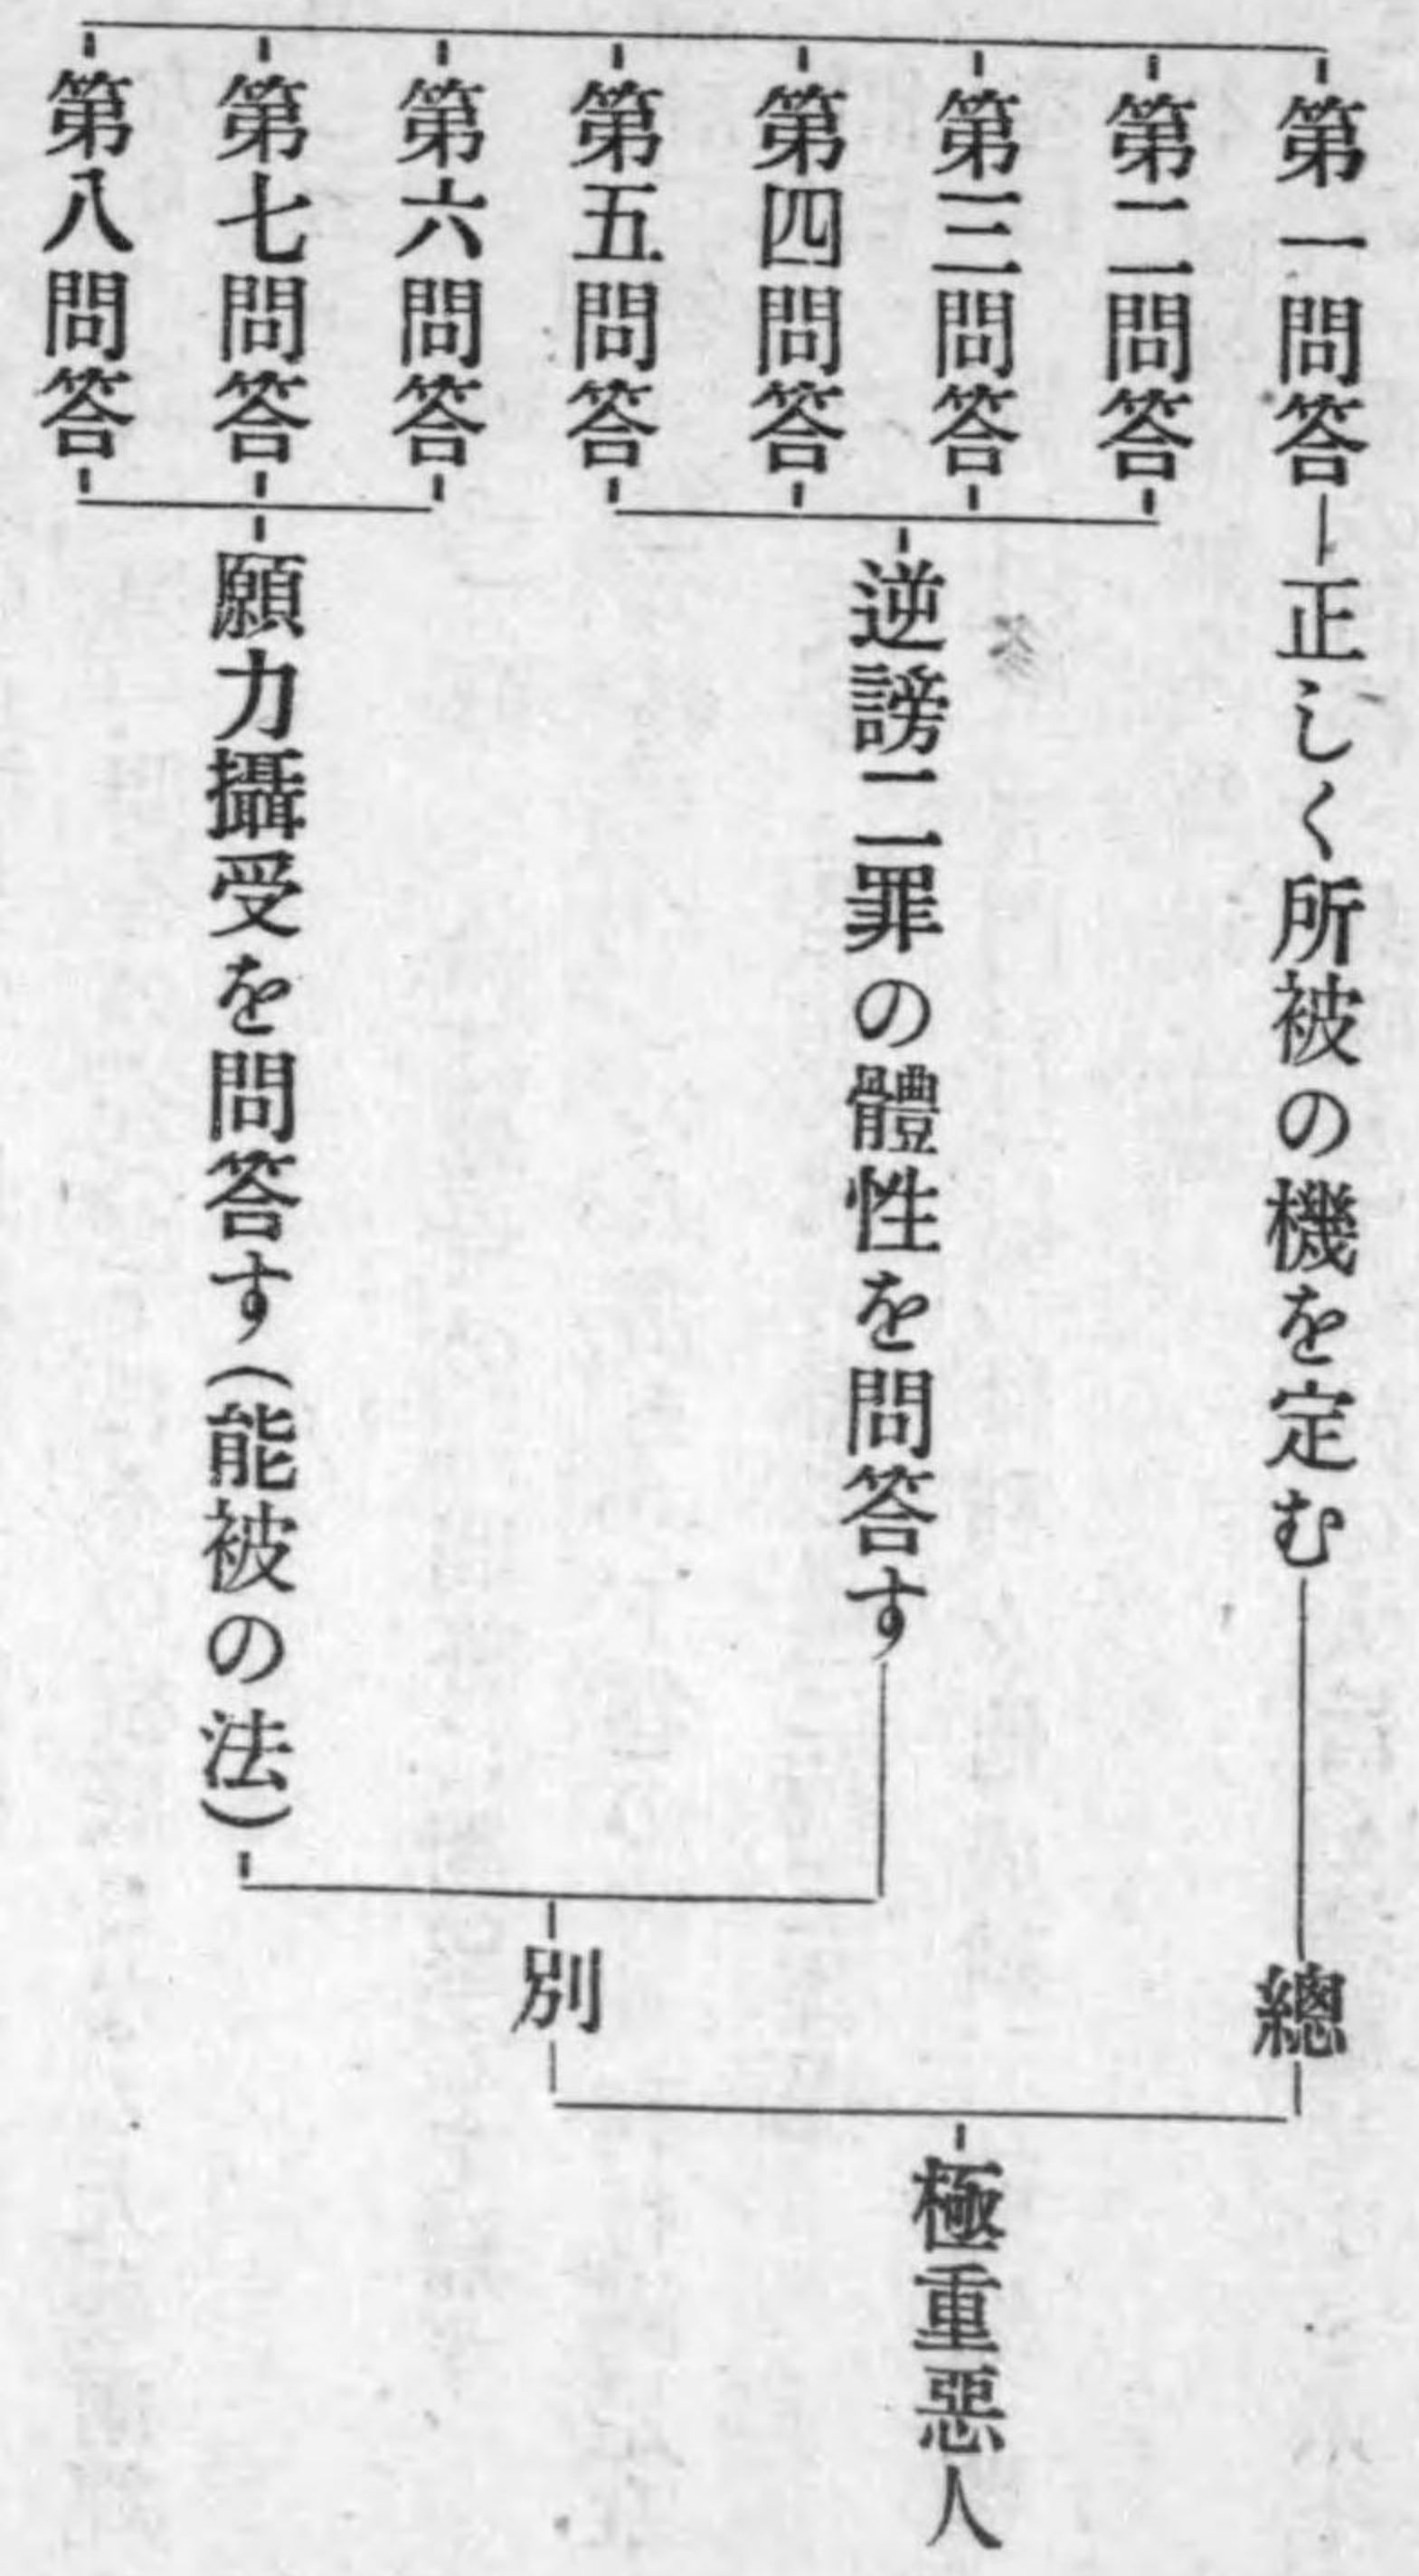 第一問答
正しく所被の機を定む
總
第二問答
第三問答
第四問答
第五問答
逆謗二罪の體性を問答す
第六問答
第七問答
第八問答
願力攝受を問答す(能被の法)
別
極重惡人